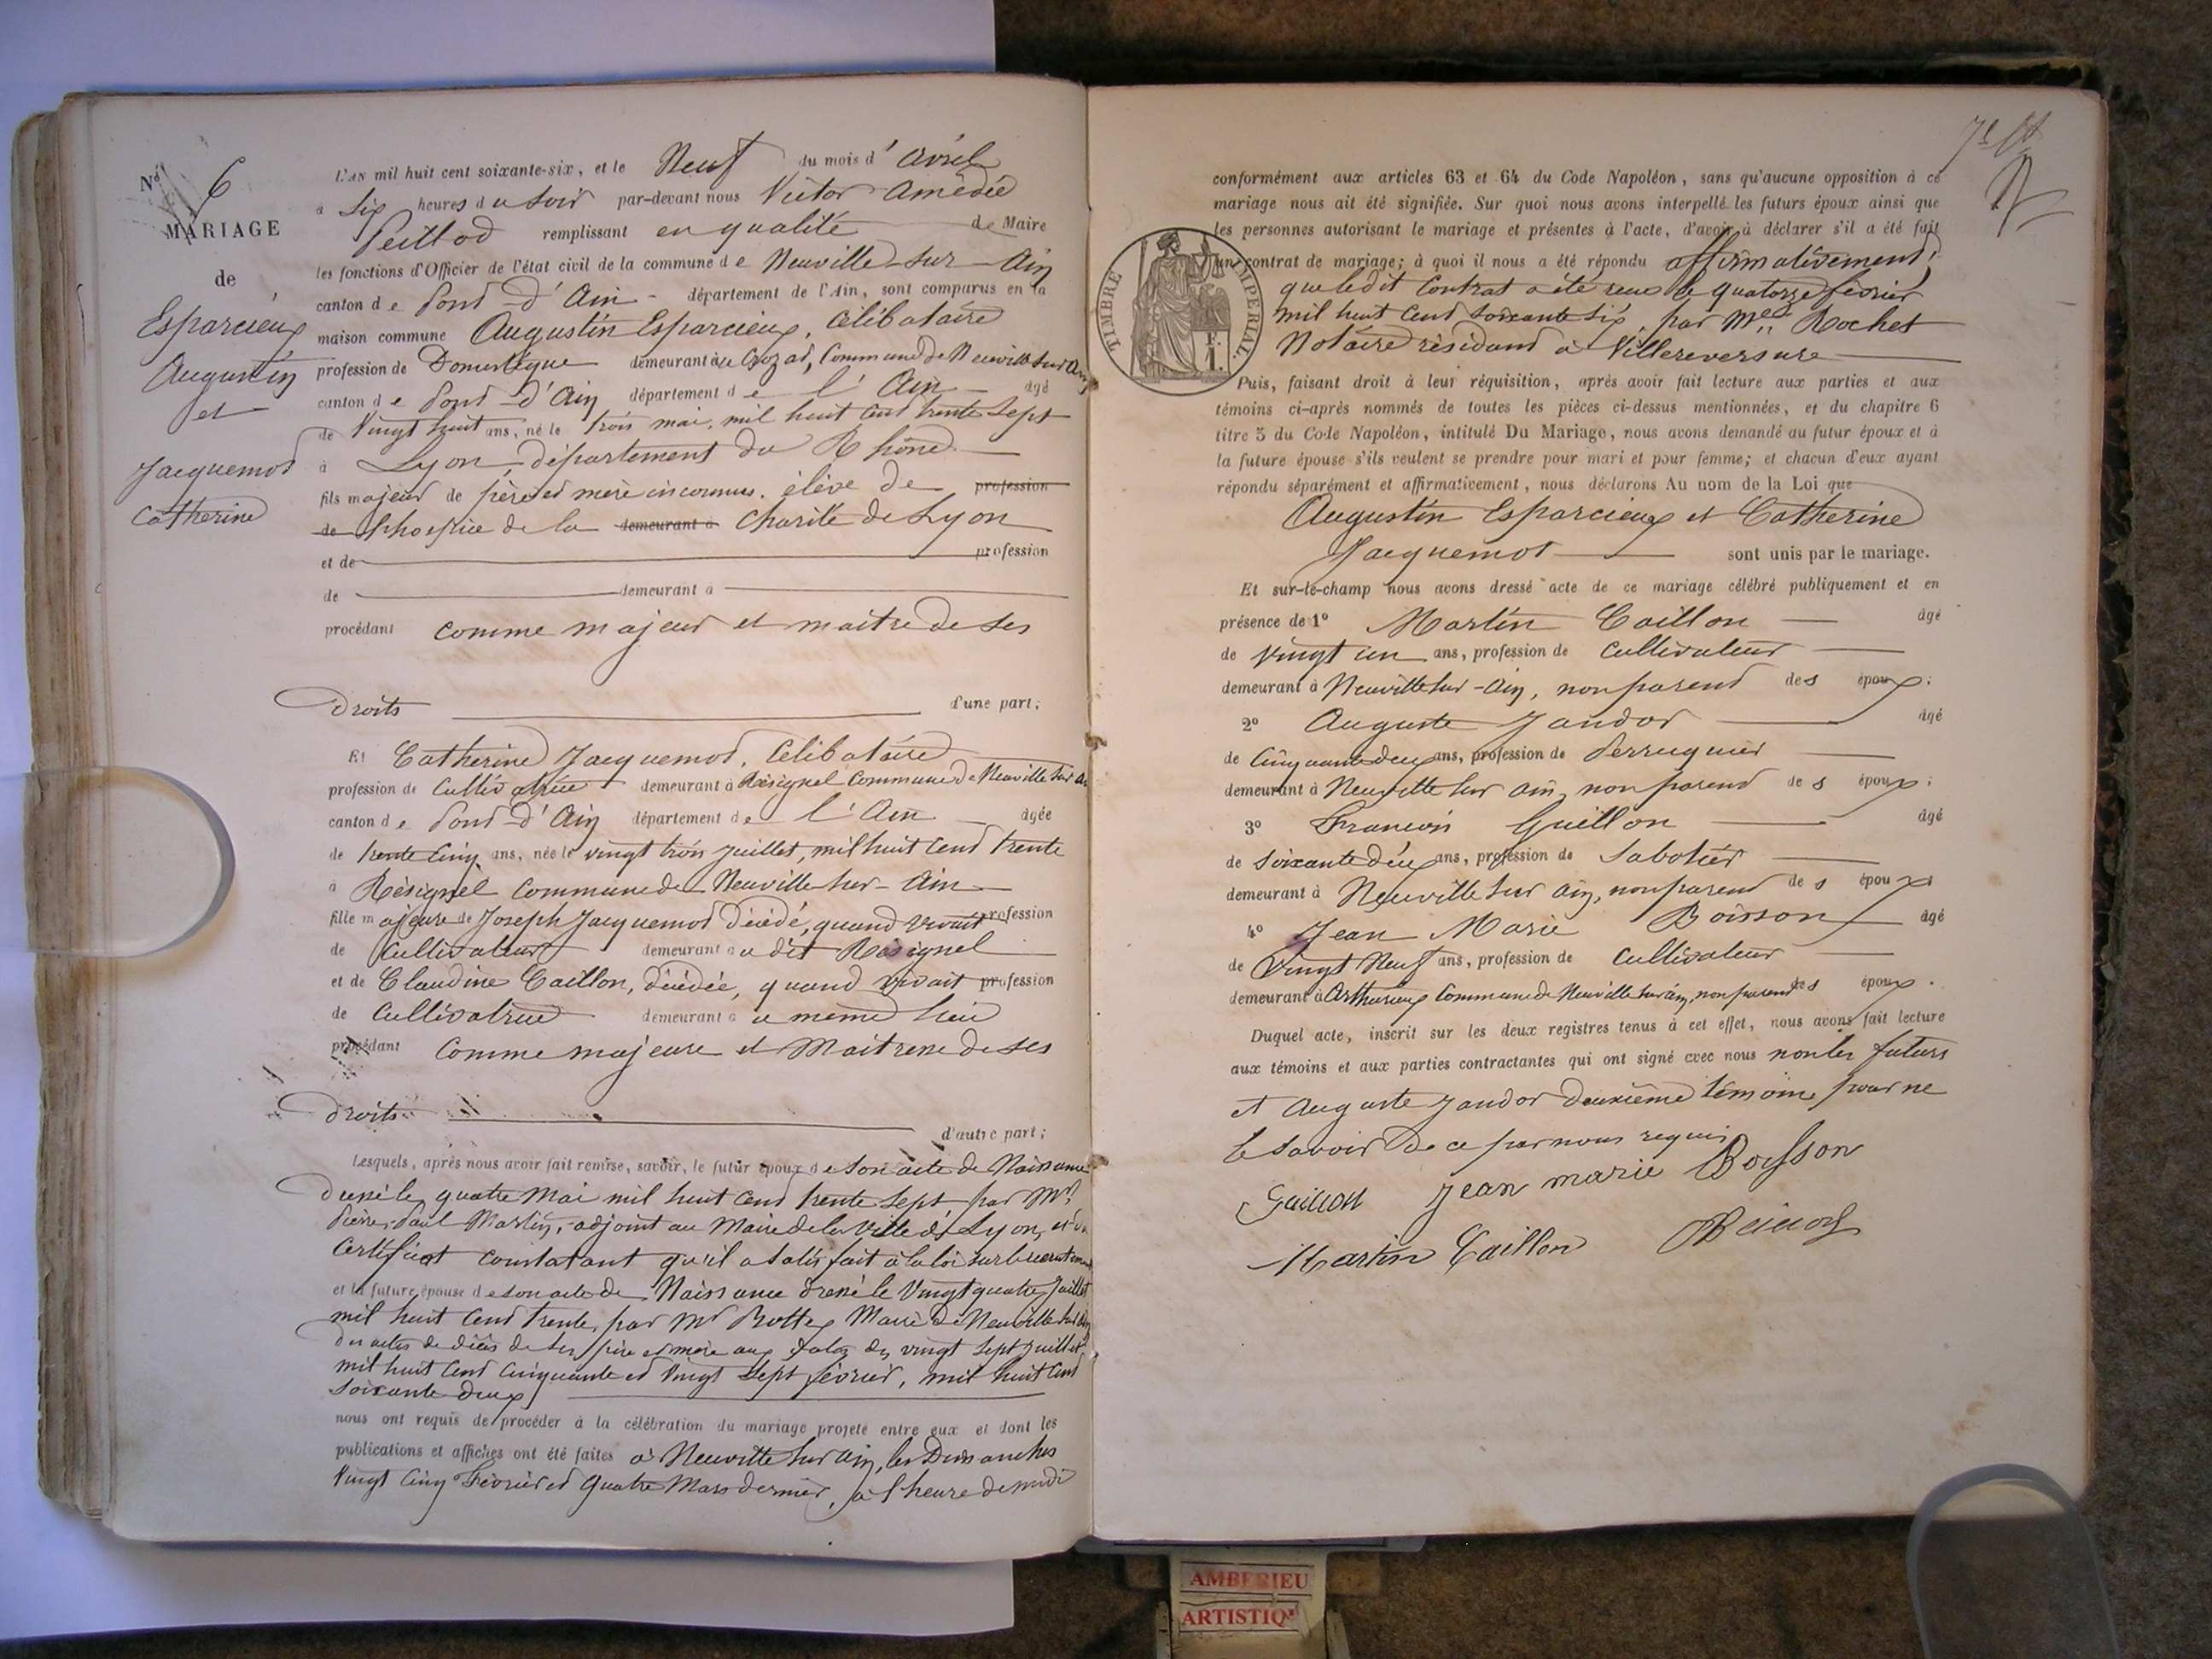 No 6
MARIAGE
de
Esparcieux
Augustin
et
Jacquemod
Catherine
L'AN mil huit cent soixante-six, et le Neuf du mois d'avril
a Six heures du Soir par-devant nous Victor Amédée
Peillod remplissant en qualité de Maire
les fonctions d'Officier de l'état civil de la commune de Neuville-sur-Ain
canton de Pont-d'Ain département de l'Ain, sont comparus en la
maison commune Augustin Esparcieux, Célibataire
profession de Domestique demeurant au Crozat, Commune de Neuville sur Ain
canton de Pont-d'Ain département de l'Ain âgé
de Vingt huit ans, né le trois mai, mil huit cent trente sept
à Lyon, département du Rhône
fils majeur de père et mère inconnus. élève de profession
de l'hospice de la demeurant à Charité de Lyon
et de profession
de demeurant a
procédant comme majeur et maître de ses
droits d'une part;
Et Catherine Jacquemod, Célibataire
profession de Cultivatrice demeurant à Résignel Commune de Neuville sur Ain
canton de Pont-d'Ain département de l'Ain âgée
de trente Cinq ans, née le vingt trois Juillet, mil huit Cent trente
à Résignel Commune de Neuville sur-Ain
fille majeure de Joseph Jacquemod décédé, quand vivait profession
de Cultivateur demeurant au dit Résignel
et de Claudine Caillon, décédée, quand vivait profession
de Cultivatrice demeurant au même lieu
procédant Comme majeure et Maitresse de ses
droits d'autre part;
Lesquels, après nous avoir fait remise, savoir, le futur époux de son acte de Naissance
dressé le quatre Mai mil huit Cent trente Sept par Mr
Pierre-Paul Martin, adjoint au Maire de la Ville de Lyon, et du
Certificat constatant qu'il a satisfait à la loi sur le recrutement
et la future épouse de son acte de Naissance dressé le Vingt quatre Juillet
mil huit Cent trente, par Mr Maire de Neuville sur Ain
des actes de décès de ses père et mère aux dates des vingt sept Juillet
mil huit Cent Cinquante et Vingt Sept février, mil huit Cent
Soixante deux
nous ont requis de procéder à la célébration du mariage projeté entre eux et dont les
publications et affiches ont été faites à Neuville sur Ain, les Dimanches
Vingt Cinq Février et Quatre Mars dernier, à l'heure de midi
conformément aux articles 63 et 64 du Code Napoléon, sans qu'aucune opposition à ce
mariage nous ait été signifiée. Sur quoi nous avons interpellé les futurs époux ainsi que
les personnes autorisant le mariage et présentes à l'acte, d'avoir à déclarer s'il a été fait
un contrat de mariage; à quoi il nous a été répondu affirmativement,
que ledit Contrat a été reçu le quatorze février
mil huit Cent Soixante Six, par Me Rochet
Notaire résidant à Villereversure
TIMBRE IMPERIAL
Puis, faisant droit à leur réquisition, après avoir fait lecture aux parties et aux
témoins ci-après nommés de toutes les pièces ci-dessus mentionnées, et du chapitre 6
titre 5 du Code Napoléon, intitulé Du Mariage, nous avons demandé au futur époux et à
la future épouse s'ils veulent se prendre pour mari et pour femme; et chacun d'eux ayant
répondu séparément et affirmativement, nous déclarons Au nom de la Loi que
Augustin Esparcieux et Catherine
Jacquemod sont unis par le mariage.
Et sur-le-champ nous avons dressé acte de ce mariage célébré publiquement et en
présence de 1o Martin Caillon âgé
de Vingt un ans, profession de Cultivateur
demeurant à Neuville sur-Ain, non parent des époux;
2o Auguste Jandor âgé
de Cinquante deux ans, profession de Perruquier
demeurant à Neuville sur ain, non parent des époux;
3o Francois Guillon âgé
de Soixante deux ans, profession de Sabotier
demeurant à Neuville sur ain, non parent des époux
4o Jean Marie Boisson âgé
de Vingt Neuf ans, profession de Cultivateur
demeurant à Arthurieux Commune de Neuville sur ain, non parent des époux.
Duquel acte, inscrit sur les deux registres tenus à cet effet, nous avons fait lecture
aux témoins et aux parties contractantes qui ont signé avec nous non les futurs
et Auguste Jandor deuxième témoin pour ne
le savoir de ce par nous requis
Guillon Jean marie Boisson
Martin Caillon
AMBERIEU
ARTISTIQ